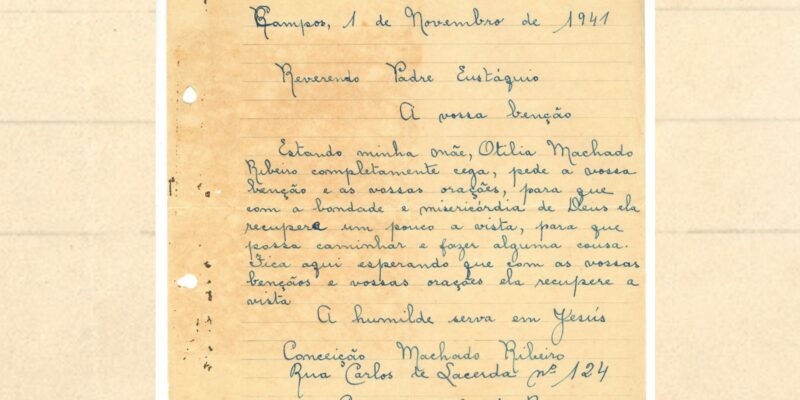 Campos, 1 de Novembro de 1941
Reverendo Padre Eustáquio
A vossa benção
Estando minha mãe, Otilia Machado
Ribeiro completamente cega, pede a vossa
benção e as vossas orações, para que
com a bondade e misericórdia de Deus ela
recupere um pouco a vista, para que
possa caminhar e fazer alguma cousa.
Fica aqui esperando que com as vossas
bençãos e vossas orações ela recupere a
vista
A humilde serva em Jesús
Conceição Machado Ribeiro
Rua Carlos de Lacerda nº 124